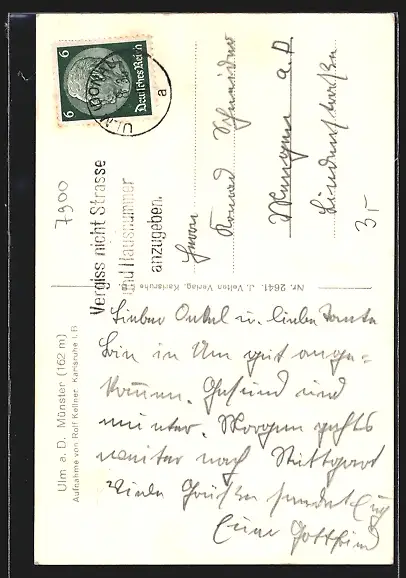 6 Deutsches Reich 6
ULM (DONAU)
a
7900
Vergiss nicht Strasse
und Hausnummer
anzugeben.
Herrn
Konrad Schneider
a. D.
Lindenstraße
3,-
Nr. 2641. J. Velten Verlag, Karlsruhe
Ulm a. D. Münster (162 m)
Aufnahme von Rolf Kellner, Karlsruhe i. B.
Lieber Onkel u. liebe Tante
Bin in Ulm gut ange-
kommen. Gesund und
munter. Morgen gehts
weiter nach Stuttgart
Viele Grüße sendet Euch
Euer Gottfried